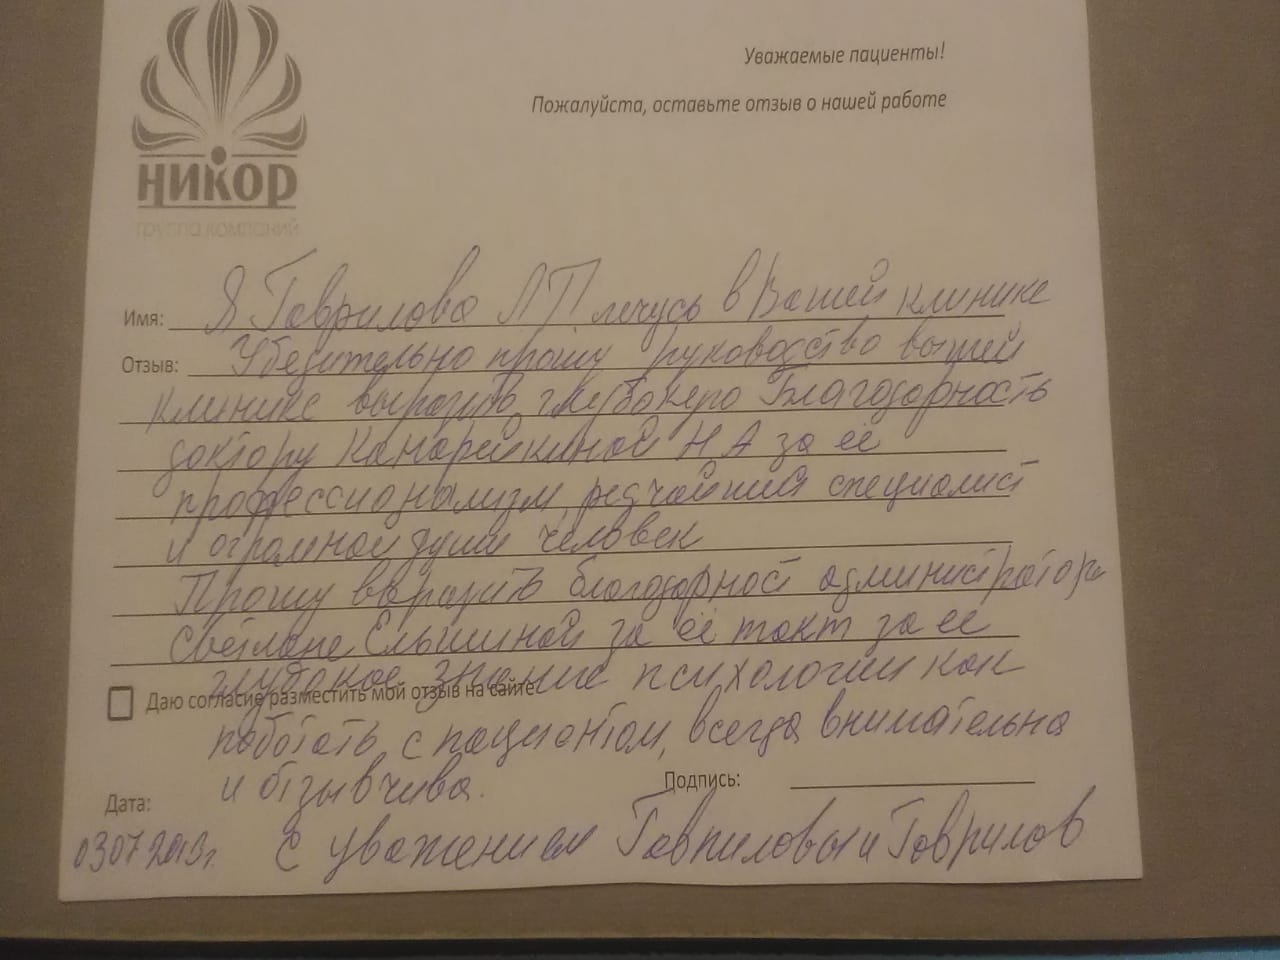 Уважаемые пациенты!
Пожалуйста, оставьте отзыв о нашей работе
НИКОР
группа компаний
Имя: Я Гаврилова ЛП лечусь в Вашей клинике
Отзыв: Убедительно прошу руководство вышей
клинике выразить глубокую Благодарность
доктору Канарейкиной Н А за её
профессионализм, редчайший специалист
и огромной души человек
Прошу выразить благодарност администратора
Светлане Ельшиной за её такт за её
глубокое знание психологии как
Даю согласие разместить мой отзыв на сайте
работать с пациентом, всегда внимательна
и отзывчива.
Подпись:
Дата:
03 07 2013г. С уважением Гавриловы и Гаврилов